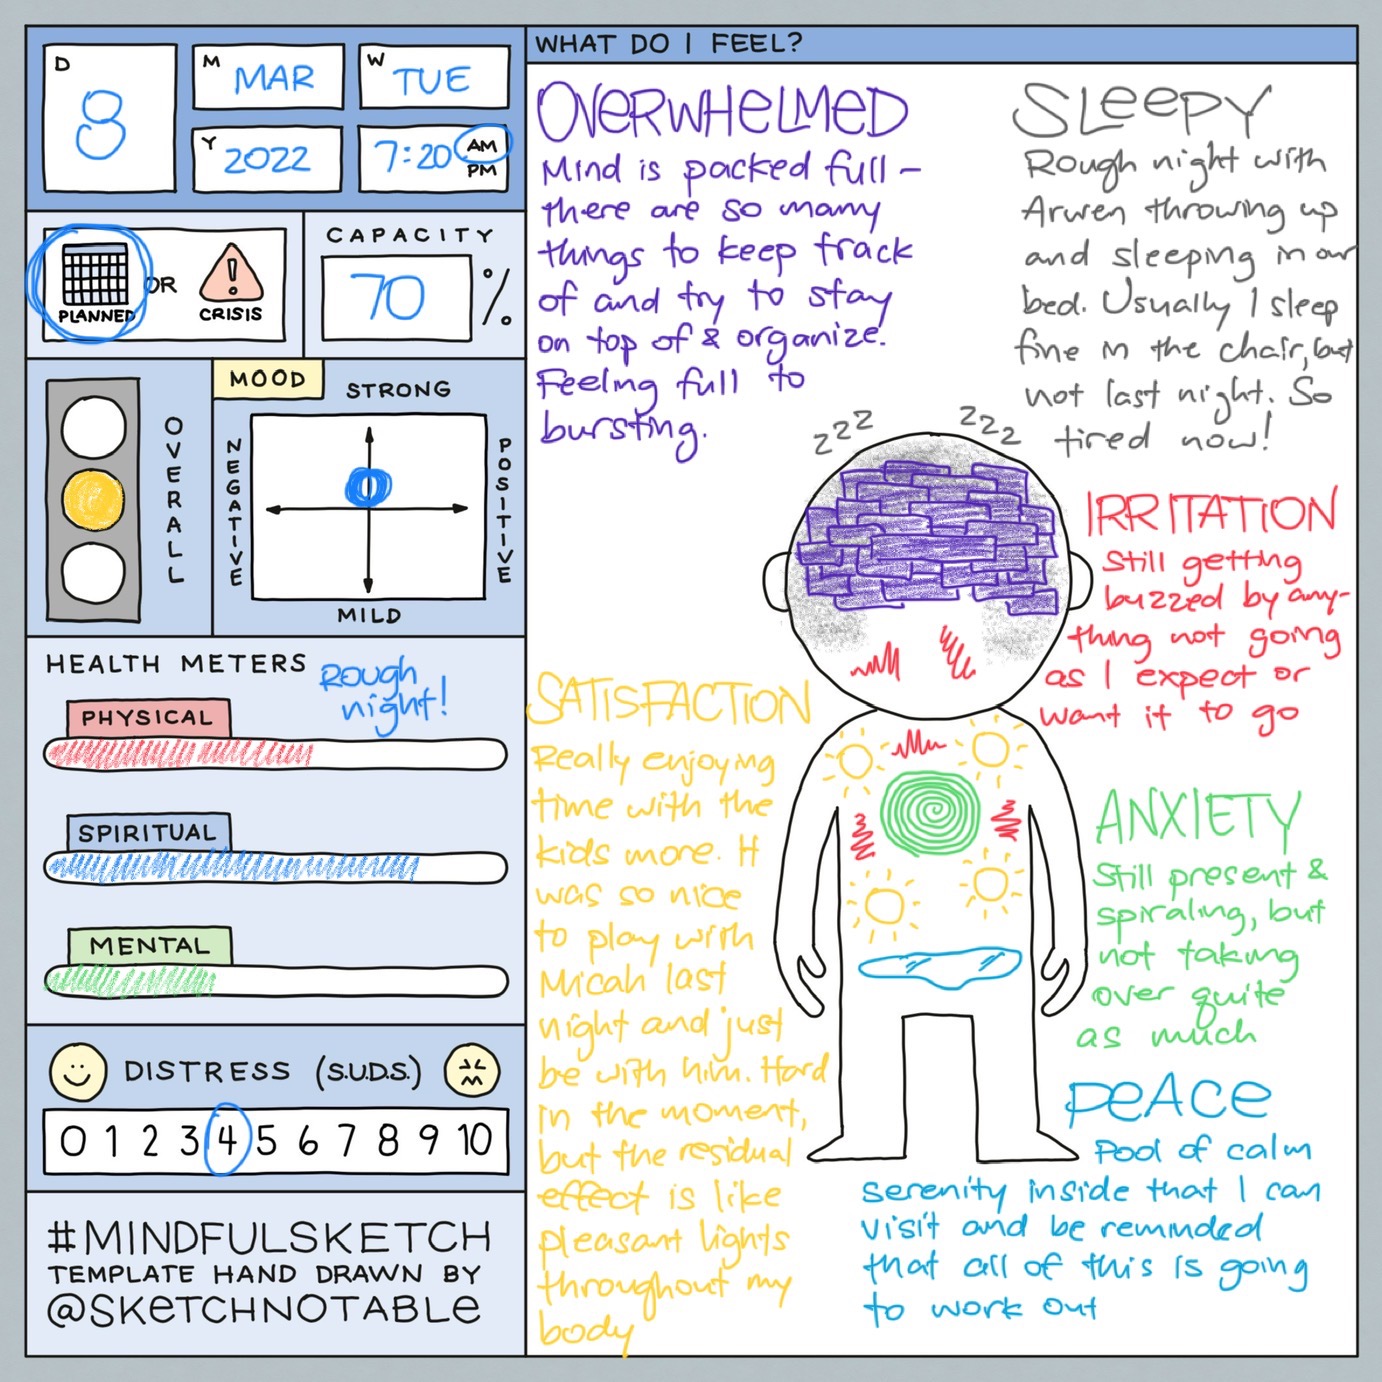 D
8
M
MAR
W
TUE
Y
2022
7:20 AM
PM
PLANNED OR CRISIS
CAPACITY
70 %
OVERALL
MOOD
STRONG
NEGATIVE
POSITIVE
MILD
HEALTH METERS
Rough
night!
PHYSICAL
SPIRITUAL
MENTAL
DISTRESS (S.U.D.S.)
0 1 2 3 4 5 6 7 8 9 10
#MINDFULSKETCH
TEMPLATE HAND DRAWN BY
@SKETCHNOTABLE
WHAT DO I FEEL?
OVERWHELMED
Mind is packed full –
there are so many
things to keep track
of and try to stay
on top of & organize.
Feeling full to
bursting.
SLEEPY
Rough night with
Arwen throwing up
and sleeping in our
bed. Usually I sleep
fine in the chair, but
not last night. So
tired now!
zzz
zzz
IRRITATION
Still getting
buzzed by any-
thing not going
as I expect or
want it to go
SATISFACTION
Really enjoying
time with the
kids more. It
was so nice
to play with
Micah last
night and just
be with him. Hard
in the moment,
but the residual
effect is like
pleasant lights
throughout my
body
ANXIETY
Still present &
spiraling, but
not taking
over quite
as much
PEACE
Pool of calm
serenity inside that I can
visit and be reminded
that all of this is going
to work out